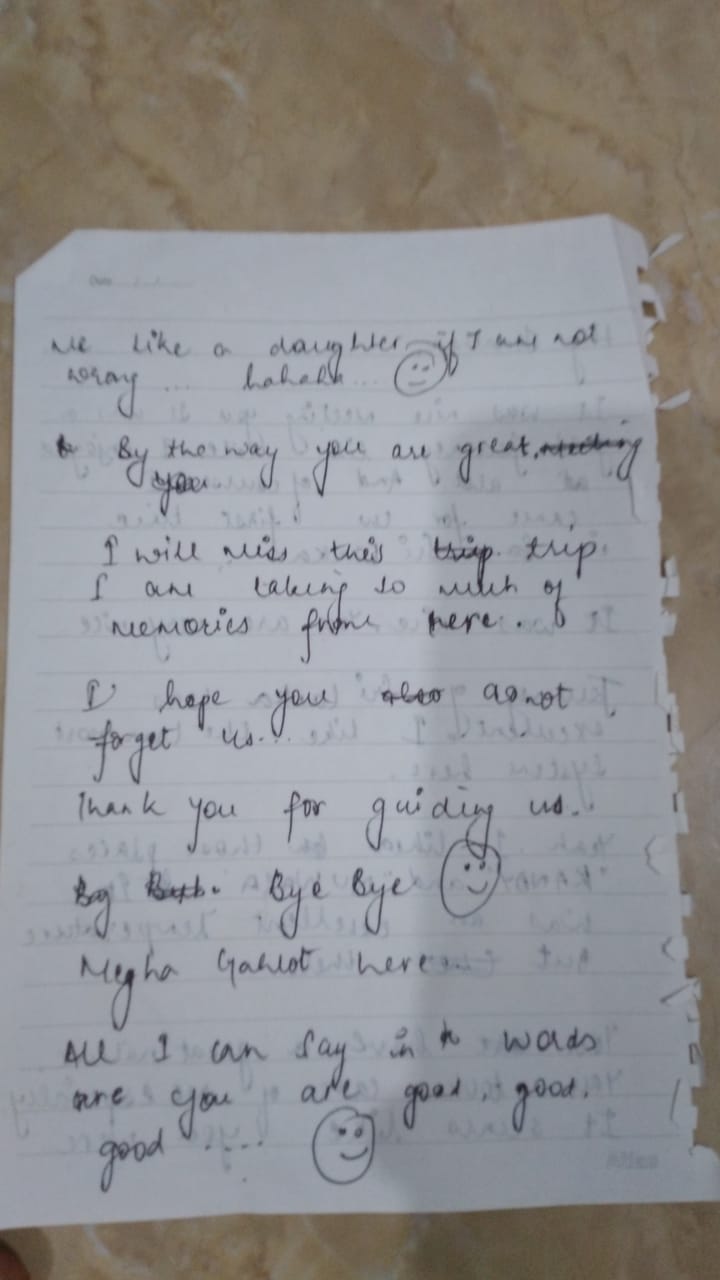 Date
me like a daughter if I am not
wrong ... hahaha...
By the way you are great,
you
I will miss this trip trip.
I am taking so much of
memories from here.
I hope you also do not
forget us...
Thank you for guiding us.
Bye Bye
Megha Gahlot here
All I can say in words
are you are good, good,
good .....